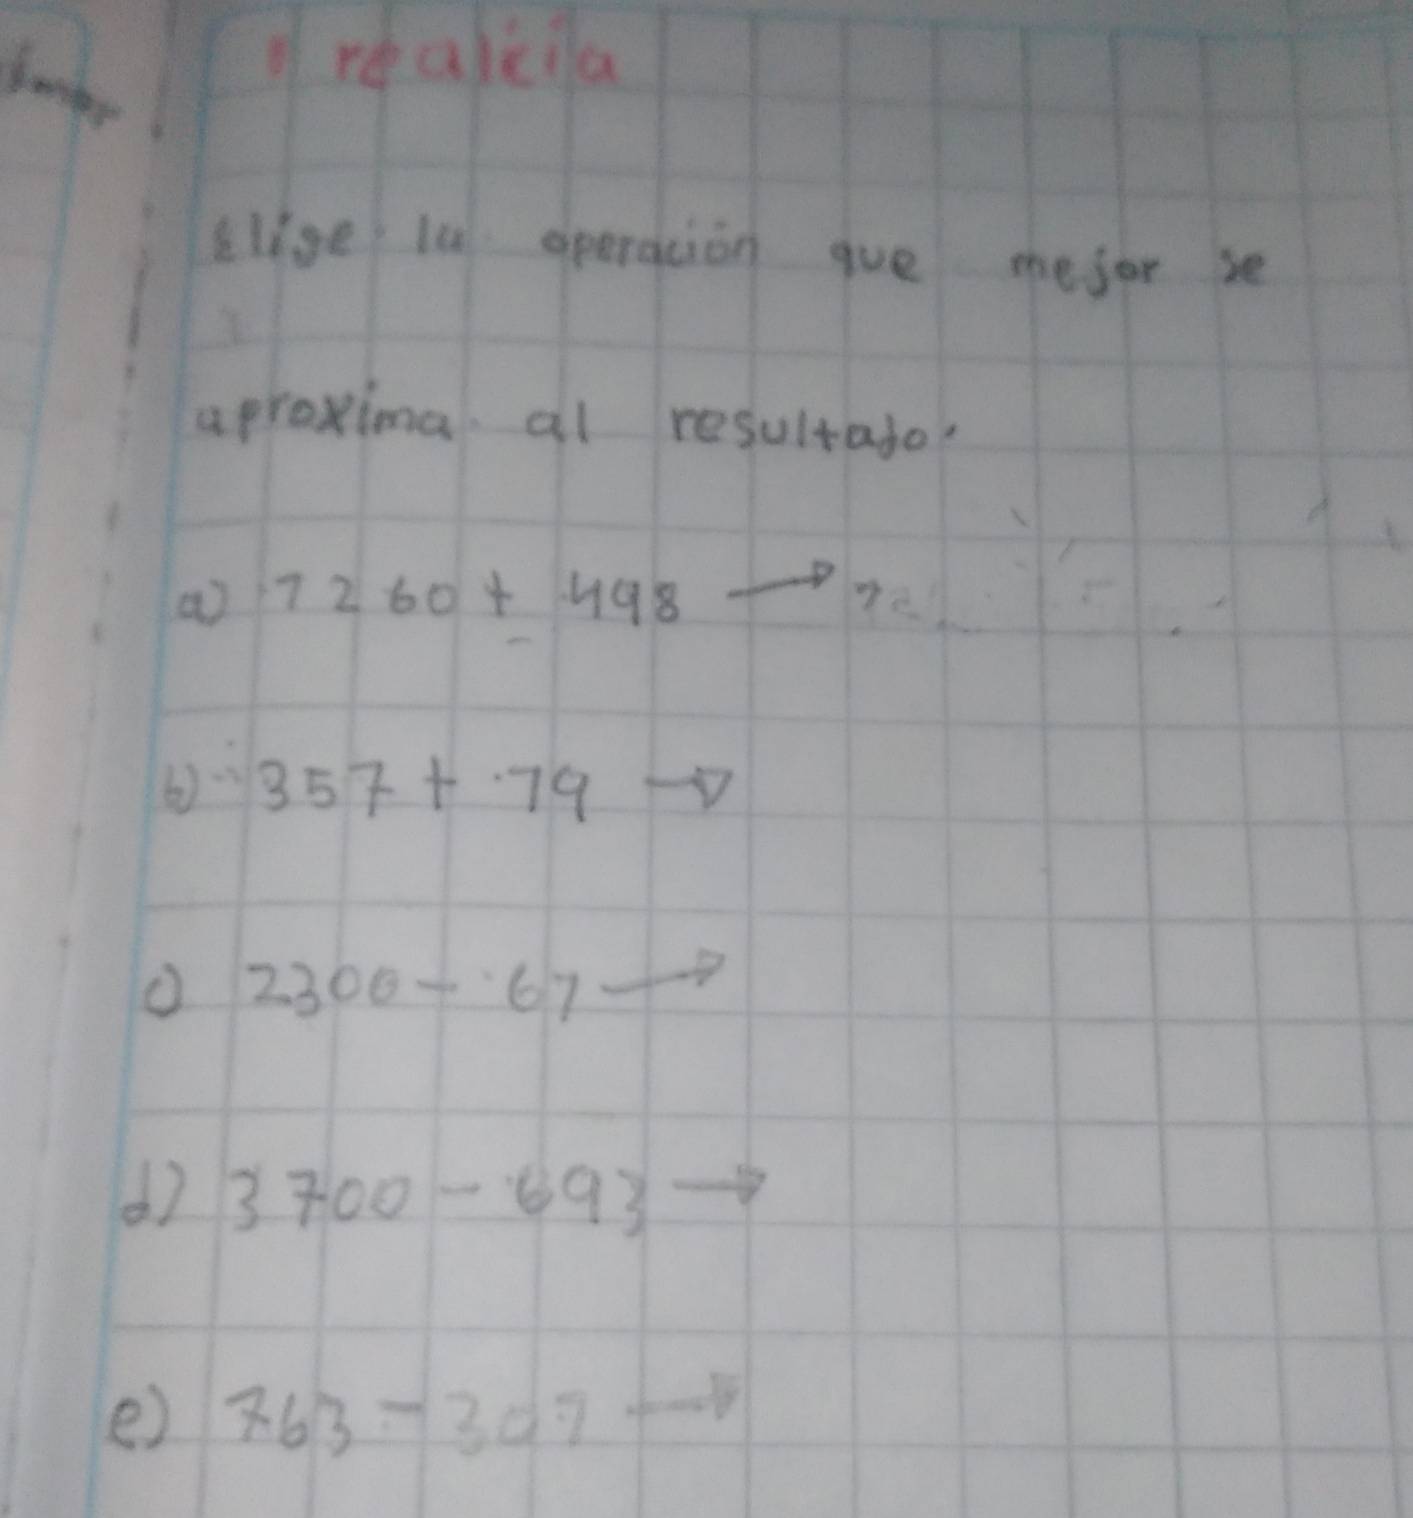 realicia
Elige la operación que mejor se
aproxima al resultado.
a) 7260 + 498 →
b) 357 + 79 →
c) 2300 - 67 →
d) 3700 - 693 →
e) 763 - 307 →